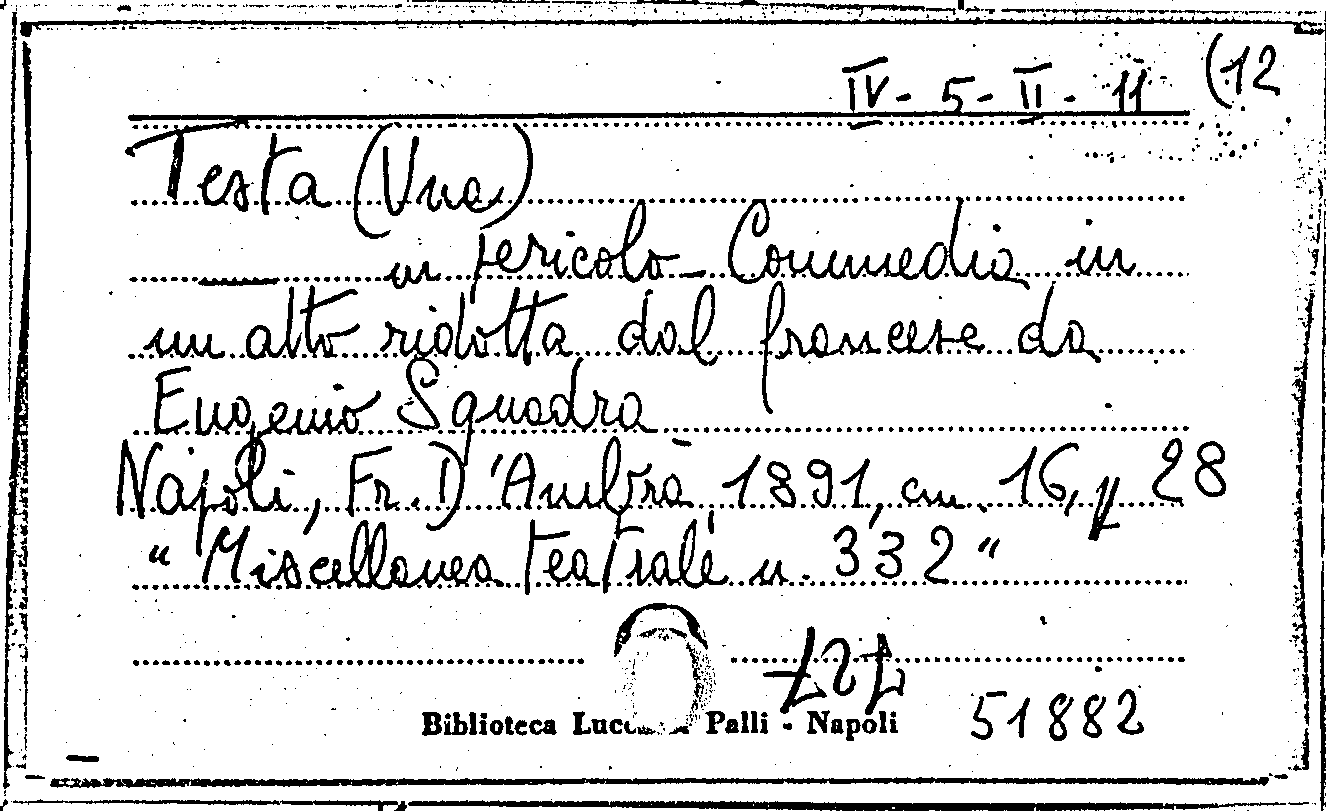 IV - 5 - II - 11 (12
Testa (Una)
—— in pericolo - Commedia in
un atto ridotta dal francese da
Eugenio Squadra
Napoli, Fr. D'Ambra 1891, cm. 16, p 28
“Miscellanea teatrale n. 332”
51882
Biblioteca Palli - Napoli